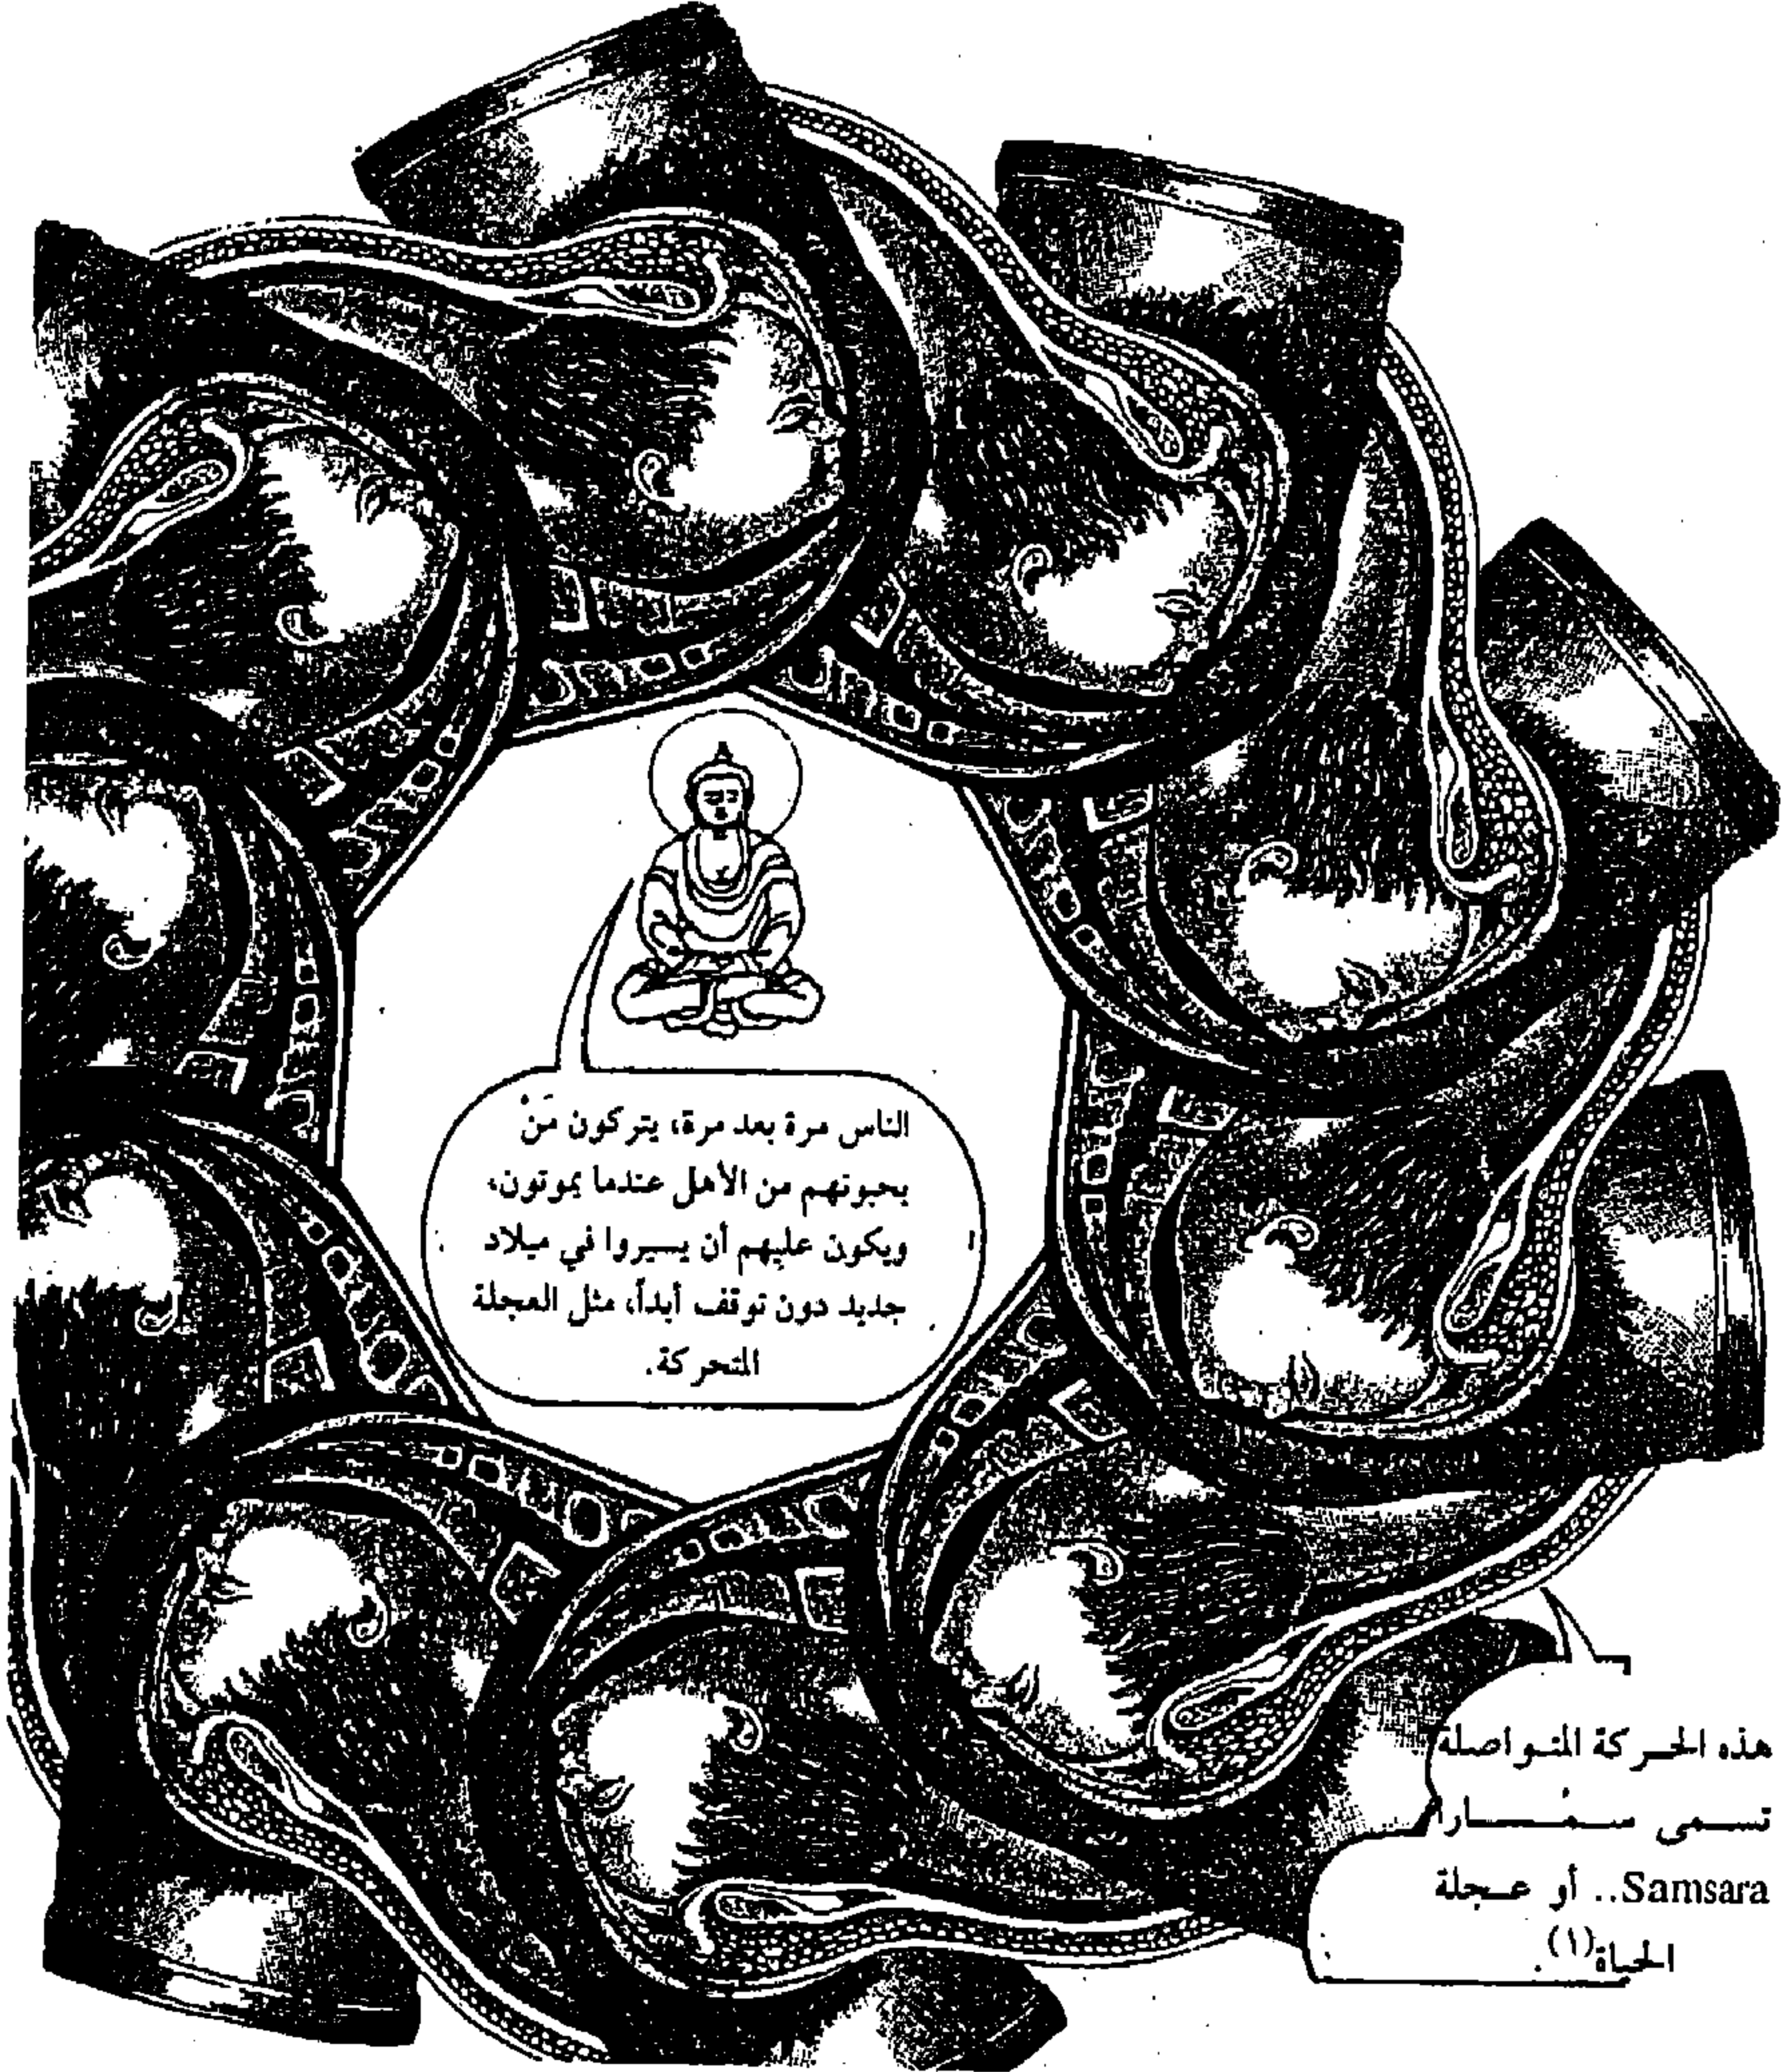 الناس مرة بعد مرة، يتركون مَنْ
يحبونهم من الأهل عندما يموتون،
ويكون عليهم أن يسيروا في ميلاد
جديد دون توقف أبداً، مثل العجلة
المتحركة.
هذه الحركة المتواصلة
تسمى سمُارا
Samsara.. أو عجلة
الحياة(١).